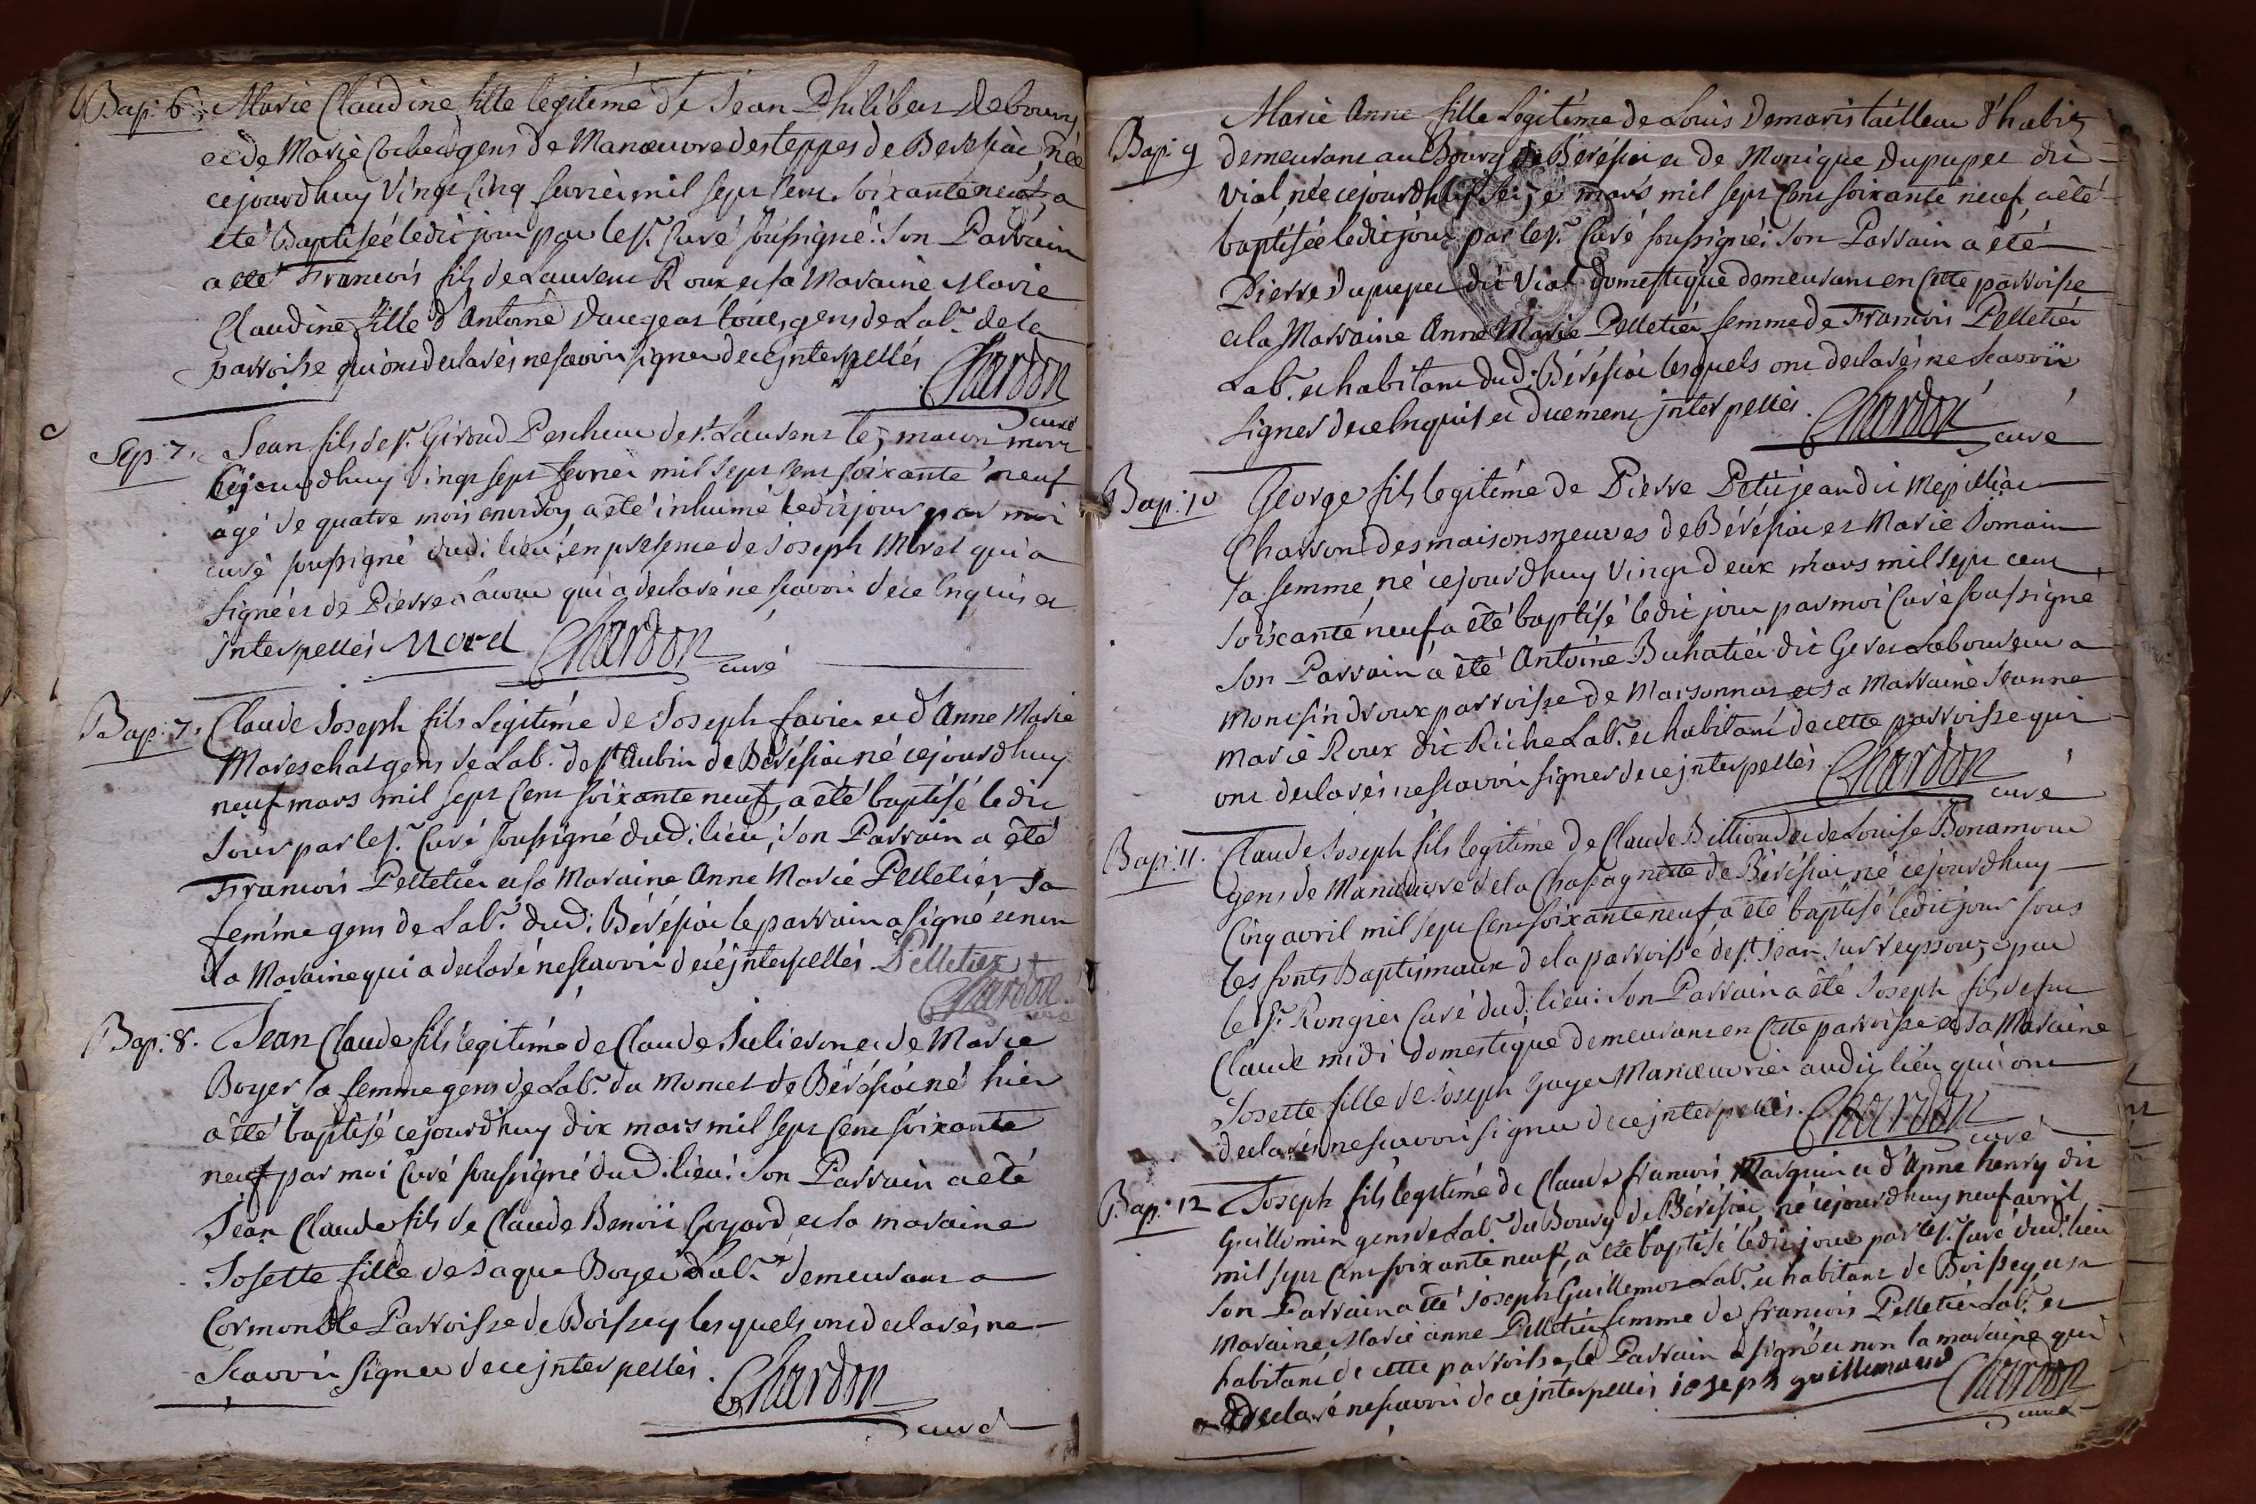 Bap: 6: Marie Claudine fille legitime de Jean Philiber Debourg
et de Marie gens de Manœuvre des teppes de Beresiat, née
cejourdhuy vingt cinq fevrier mil sept cent soixante neuf a
été Baptisée ledit jour par le sr. Curé soussigné: son Parrain
a eté Francois fils de Laurent Roux et sa Maraine Marie
Claudine fille d'Antoine Daugeat tous gens de Labr. de la
parroisse qui ont declarés ne scavoir signer de ce interpellés Chardon
curé
Sep: 7. Jean fils de sr. Giroud Pescheur de st. Laurent les macon mort
cejourdhuy vingt sept fevrier mil sept cent soixante neuf
agé de quatre mois environ a eté inhumé ledit jour par moi
curé soussigné dud: lieu, en presence de Joseph Morel qui a
signé et de Pierre qui a declaré ne scavoir de ce enquis et
interpellés Morel Chardon curé
Bap: 7. Claude Joseph fils Legitime de Joseph favier et d'Anne Marie
Mareschal gens de Lab. de st Aubin de Bérésiat né cejourdhuy
neuf mars mil sept cent soixante neuf, a été baptisé ledit
Jour par le sr. Curé soussigné dud: lieu; son Parrain a été
Francois Pelletier et sa Maraine Anne Marie Pelletier sa
femme gens de Labr. dud: Béresiat le parrain a signé et non
la Maraine qui a declaré ne scavoir de ce interpellés Pelletier
Chardon curé
Bap: 8. Jean Claude fils légitime de Claude Julieron et de Marie
Boyer sa femme gens de Labr. du Moncet de Béresiat né hier
a été baptisé cejourdhuy dix mars mil sept cent soixante
neuf par moi Curé soussigné dud. lieu: son Parrain a été
Jean Claude fils de Claude Benoit Goyard et la maraine
Josette fille de Jaque Boyer Labr. demeurant a
Cormonble Parroisse de Boissey lesquels ont declarés ne
Scavoir signer de ce interpellés. Chardon
curé
Marie Anne fille Legitime de Louis Demaris tailleur d'habits
Bap: 9 demeurant au Bourg de Béresiat et de Monique Dupupet dit
Vial, née cejourdhuy seize mars mil sept cent soixante neuf a été
baptisée ledit jour par le sr. Curé soussigné: son Parrain a été
Pierre Dupupet dit Vial domestique demeurant en cette parroisse
et la Marraine Anne Marie Pelletier femme de Francois Pelletier
Labr. et habitant dud: Bérésiat lesquels ont declarés ne Scavoir
signer de ce Enquis et duement interpellés. Chardon
curé
Bap: 10 George fils legitime de Pierre Petitjean dit Mepilliat
Charron des maisons neuves de Béresiat et Marie Romain
sa femme, né cejourdhuy vingt deux mars mil sept cent
soixante neuf a été baptisé ledit jour par moi Curé soussigné
son Parrain a été Antoine Buhatier dit Gevet Laboureur a
Moncsindroux parroisse de Marsonnas et sa Marraine Jeanne
Marie Roux dit Riche Labr. et habitant de cette parroisse qui
ont declarés ne scavoir signer de ce interpellés. Chardon
curé
Bap: 11. Claude Joseph fils legitime de Claude Billioud et de Louise Bonamour
gens de Manœuvre de la Chassagnette de Béresiat né cejourdhuy
Cinq avril mil sept cent soixante neuf a été baptisé ledit jour sous
les fonts Baptismaux de la parroisse de st Jean sur reyssouze par
le sr. Rongier Curé dud: lieu: son Parrain a été Joseph fils de feu
Claude midi domestique demeurant en cette parroisse et sa Maraine
Josette fille de Joseph Goyer Manœuvrier audit lieu qui ont
declarés ne scavoir signer de ce interpellés. Chardon
curé
Bap: 12 Joseph fils legitime de Claude francois Masquin et d'Anne henry dit
Guillemin gens de Labr. du Bourg de Béresiat né cejourdhuy neuf avril
mil sept cent soixante neuf, a été baptisé ledit jour par le sr. Curé dud: lieu
son Parrain a été Joseph Guillemot Labr. et habitant de Boissey et sa
Maraine Marie anne Pelletier femme de francois Pelletier Labr. et
habitant de cette parroisse, le Parrain a signé et non la maraine qui
a declaré ne scavoir de ce interpellés ioseph guillemaud Chardon
curé